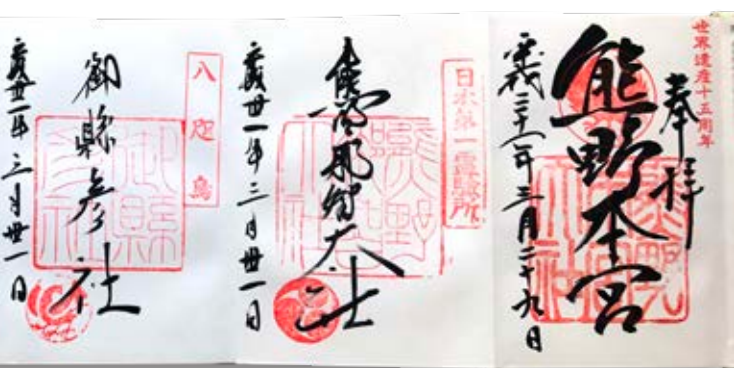 世界遺産十五周年
奉拝
熊野本宮
平成三十一年三月二十九日
日本第一霊験所
熊野那智大社
平成卅一年三月卅一日
八咫烏
御縣彦社
平成卅一年三月卅一日